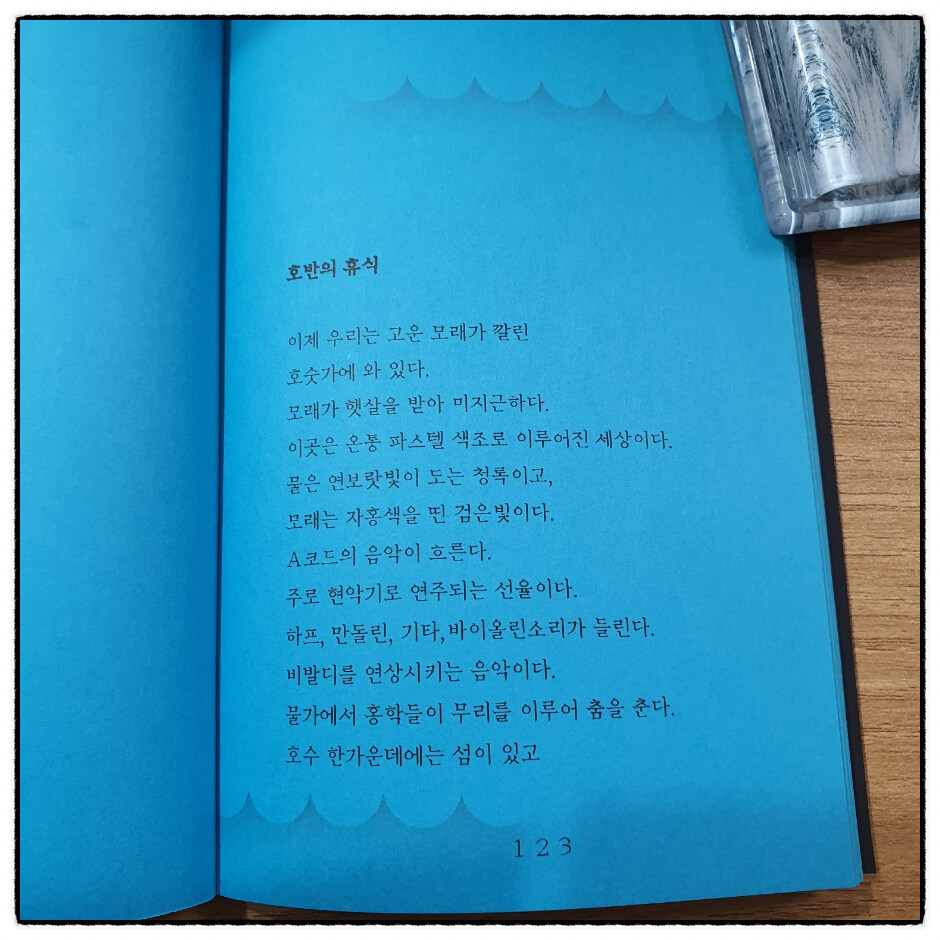 호반의 휴식
이제 우리는 고운 모래가 깔린
호숫가에 와 있다.
모래가 햇살을 받아 미지근하다.
이곳은 온통 파스텔 색조로 이루어진 세상이다.
물은 연보랏빛이 도는 청록이고,
모래는 자홍색을 띤 검은빛이다.
A코드의 음악이 흐른다.
주로 현악기로 연주되는 선율이다.
하프, 만돌린, 기타, 바이올린소리가 들린다.
비발디를 연상시키는 음악이다.
물가에서 홍학들이 무리를 이루어 춤을 춘다.
호수 한가운데에는 섬이 있고
123